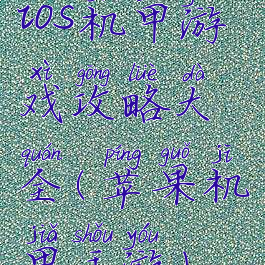 ios机甲游
xì gōng lüè dà
戏攻略大
quán píng guǒ jī
全(苹果机
jiǎ shǒu yóu
甲手游)